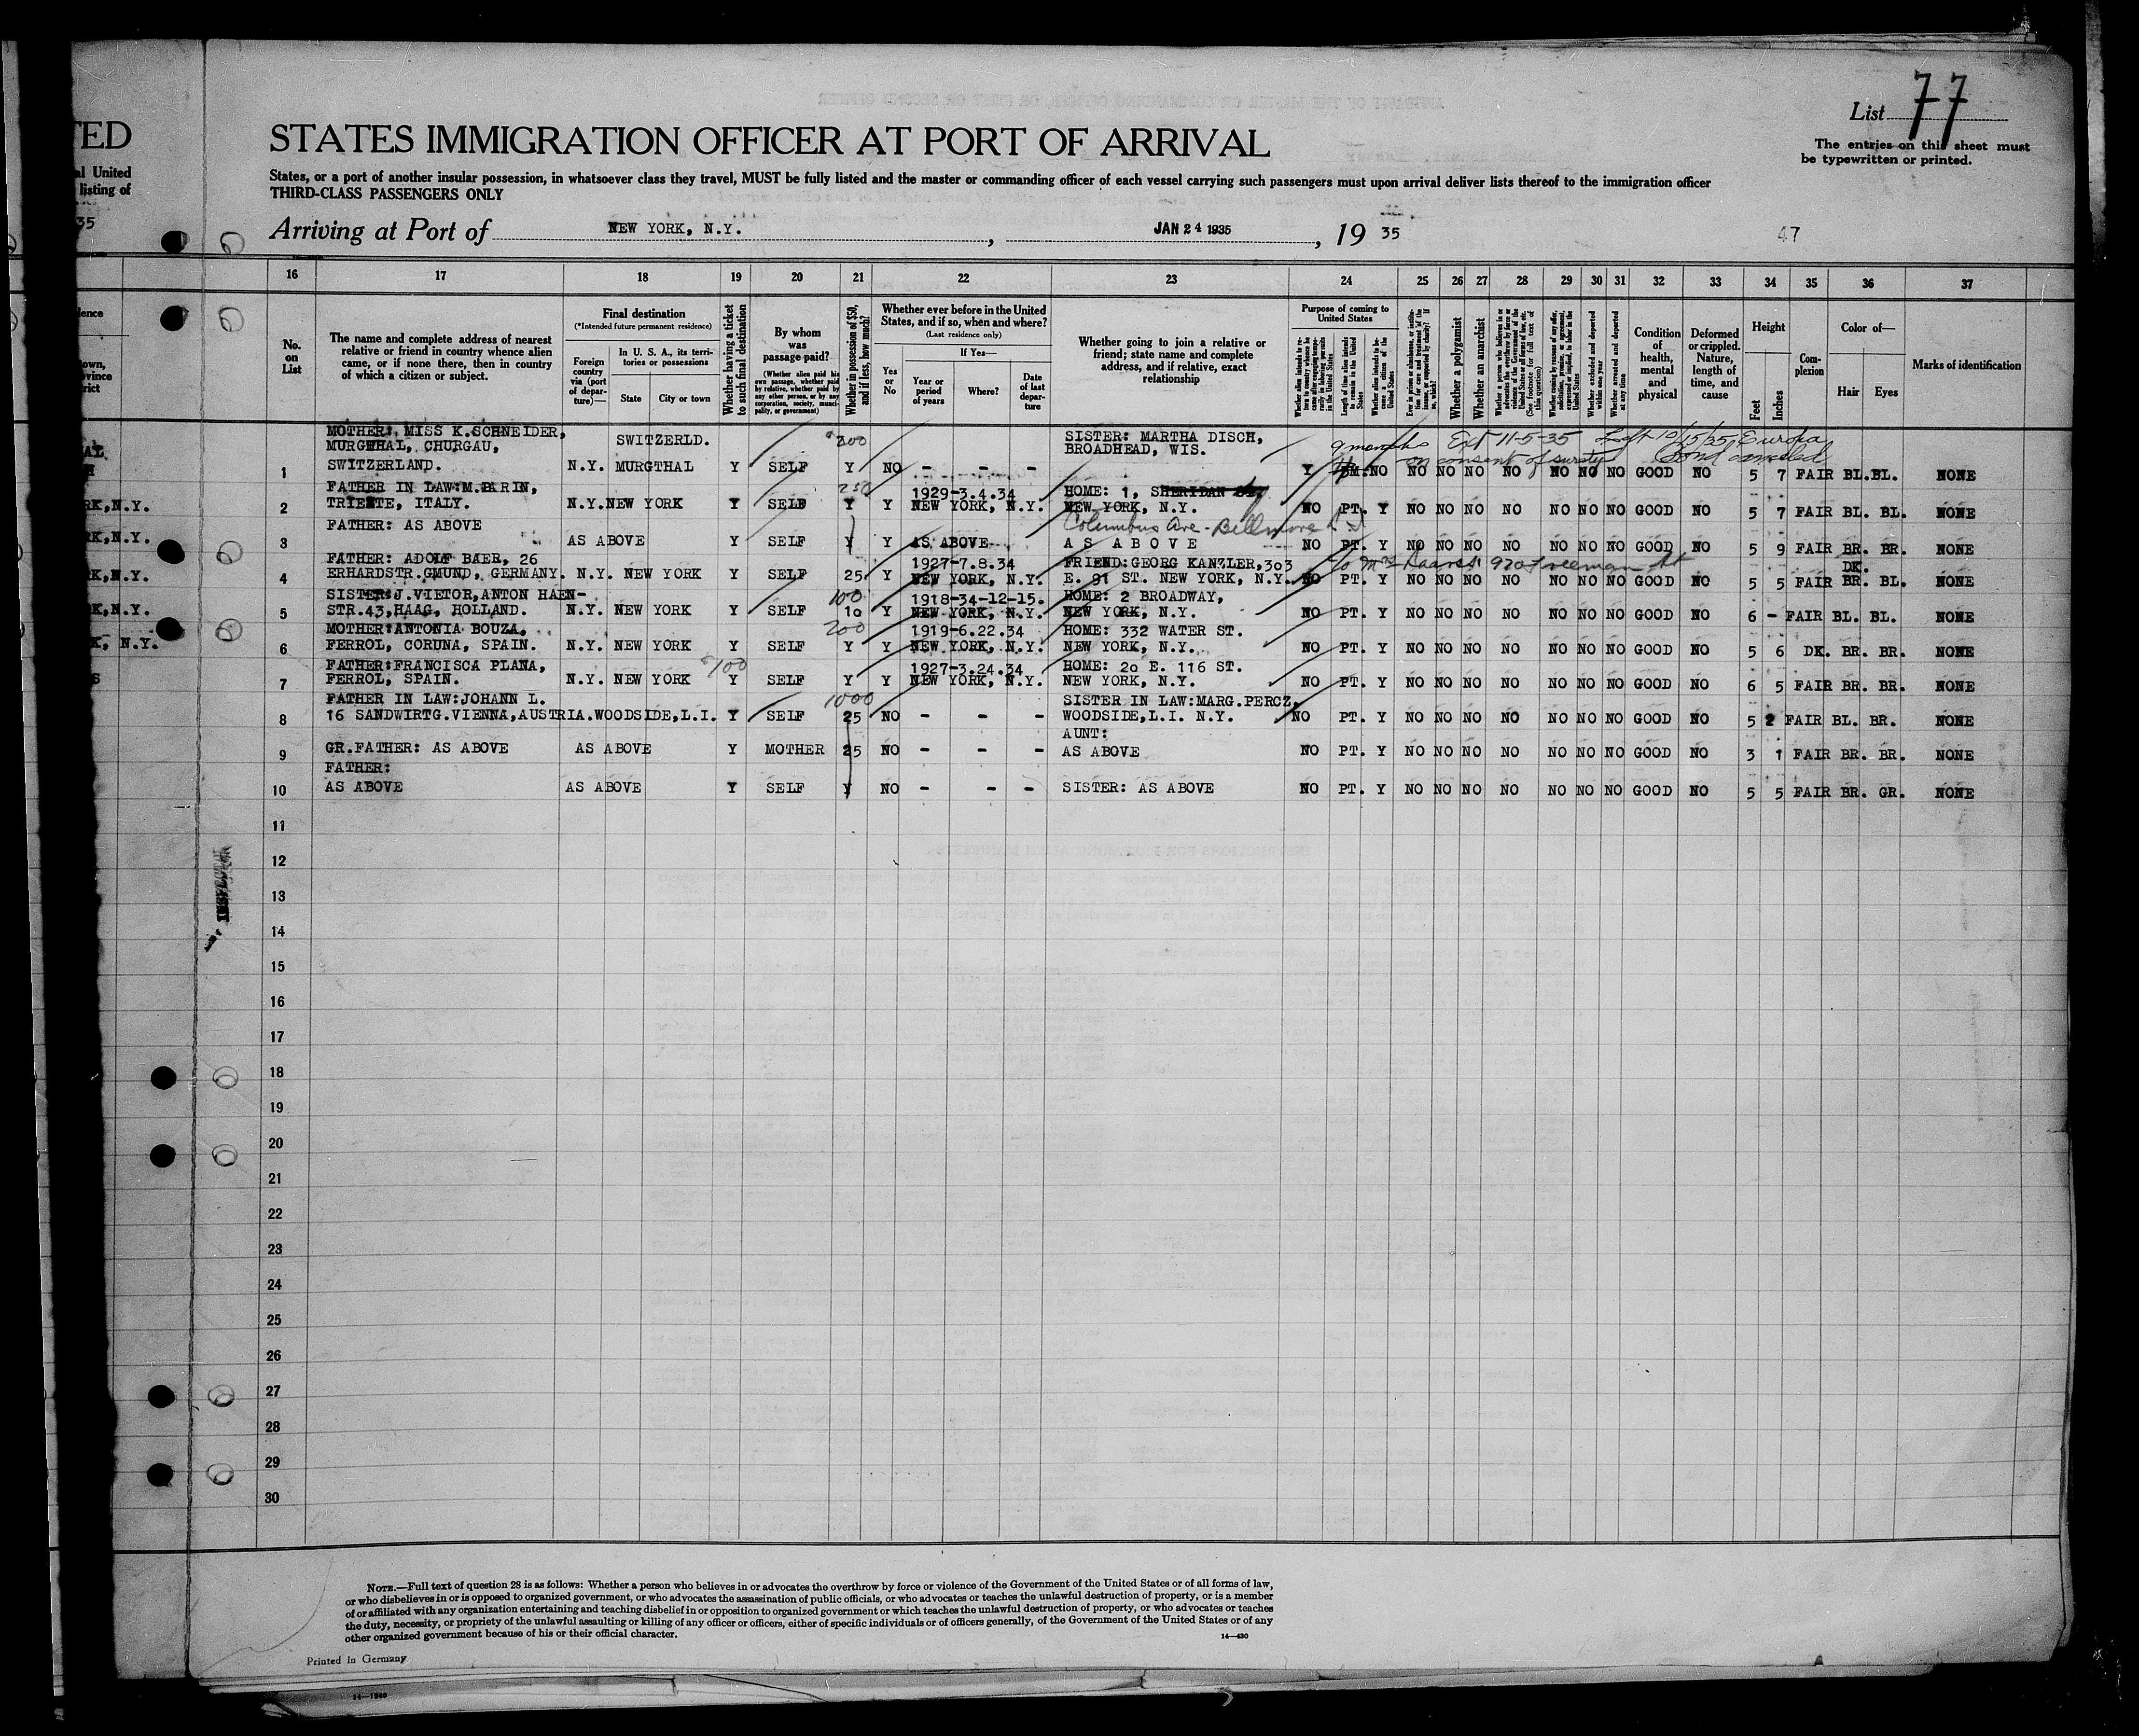 TED
al United
listing of
35
List 77
The entries on this sheet must
be typewritten or printed.
STATES IMMIGRATION OFFICER AT PORT OF ARRIVAL
States, or a port of another insular possession, in whatsoever class they travel, MUST be fully listed and the master or commanding officer of each vessel carrying such passengers must upon arrival deliver lists thereof to the immigration officer
THIRD-CLASS PASSENGERS ONLY
Arriving at Port of NEW YORK, N.Y. , JAN 24 1935 , 19 35
47
16 17 18 19 20 21 22 23 24 25 26 27 28 29 30 31 32 33 34 35 36 37
No. on List
The name and complete address of nearest relative or friend in country whence alien came, or if none there, then in country of which a citizen or subject.
Final destination
(*Intended future permanent residence)
Foreign country via (port of departure)—
In U. S. A., its territories or possessions
State City or town
Whether having a ticket to such final destination
By whom was passage paid?
(Whether alien paid his own passage, whether paid by relative, whether paid by any other person, or by any corporation, society, municipality, or government)
Whether in possession of $50, and if less, how much?
Whether ever before in the United States, and if so, when and where?
(Last residence only)
Yes or No
If Yes—
Year or period of years
Where?
Date of last departure
Whether going to join a relative or friend; state name and complete address, and if relative, exact relationship
Purpose of coming to United States
Length of time alien intends to remain in the United States
Whether alien intends to become a citizen of the United States
Whether a polygamist
Whether an anarchist
Whether excluded and deported within one year
Whether arrested and deported at any time
Condition of health, mental and physical
Deformed or crippled. Nature, length of time, and cause
Height
Feet Inches
Complexion
Color of—
Hair Eyes
Marks of identification
MOTHER: MISS K.SCHNEIDER, SWITZERLD. $200 SISTER: MARTHA DISCH, 9 months Ext 11-5-35 Left 10/15/35, Europa
MURGTHAL, CHURGAU, BROADHEAD, WIS. on consent of surety Bond canceled
1 SWITZERLAND. N.Y. MURGTHAL Y SELF Y NO - - - Y NO NO NO NO NO NO NO NO GOOD NO 5 7 FAIR BL.BL. NONE
FATHER IN LAW:M.PARIN, 250 1929-3.4.34 HOME: 1, SHERIDAN
2 TRIESTE, ITALY. N.Y.NEW YORK Y SELF Y Y NEW YORK, N.Y. NEW YORK, N.Y. NO PT. Y NO NO NO NO NO NO NO GOOD NO 5 7 FAIR BL. BL. NONE
Columbus Ave - Bellmore L I
FATHER: AS ABOVE
3 AS ABOVE Y SELF Y Y AS ABOVE AS ABOVE NO PT. Y NO NO NO NO NO NO NO GOOD NO 5 9 FAIR BR. BR. NONE
FATHER: ADOLF BAER, 26 1927-7.8.34 FRIEND:GEORG KANZLER,303 c/o 970 Freeman St DK.
4 ERHARDSTR.GMUND, GERMANY. N.Y. NEW YORK Y SELF 25 Y NEW YORK, N.Y. E. 91 ST. NEW YORK, N.Y. NO PT. Y NO NO NO NO NO NO NO GOOD NO 5 5 FAIR BR. BL. NONE
SISTER:J.VIETOR,ANTON HAEN- 100 1918-34-12-15. HOME: 2 BROADWAY,
5 STR.43,HAAG, HOLLAND. N.Y. NEW YORK Y SELF 10 Y NEW YORK, N.Y. NEW YORK, N.Y. NO PT. Y NO NO NO NO NO NO NO GOOD NO 6 - FAIR BL. BL. NONE
MOTHER:ANTONIA BOUZA, 200 1919-6.22.34 HOME: 332 WATER ST.
6 FERROL, CORUNA, SPAIN. N.Y. NEW YORK Y SELF Y Y NEW YORK, N.Y. NEW YORK, N.Y. NO PT. Y NO NO NO NO NO NO NO GOOD NO 5 6 DK. BR. BR. NONE
FATHER:FRANCISCA PLANA, $100 1927-3.24.34 HOME: 20 E. 116 ST.
7 FERROL, SPAIN. N.Y. NEW YORK Y SELF Y Y NEW YORK, N.Y. NEW YORK, N.Y. NO PT. Y NO NO NO NO NO NO NO GOOD NO 6 5 FAIR BR. BR. NONE
FATHER IN LAW:JOHANN L. 1000 SISTER IN LAW:MARG.PERCZ,
8 16 SANDWIRTG.VIENNA,AUSTRIA.WOODSIDE,L.I. Y SELF 25 NO - - WOODSIDE,L.I. N.Y. NO PT. Y NO NO NO NO NO NO NO GOOD NO 5 2 FAIR BL. BR. NONE
AUNT:
9 GR.FATHER: AS ABOVE AS ABOVE Y MOTHER 25 NO - - - AS ABOVE NO PT. Y NO NO NO NO NO NO NO GOOD NO 3 1 FAIR BR. BR. NONE
FATHER:
10 AS ABOVE AS ABOVE Y SELF Y NO - - - SISTER: AS ABOVE NO PT. Y NO NO NO NO NO NO NO GOOD NO 5 5 FAIR BR. GR. NONE
11
12
13
14
15
16
17
18
19
20
21
22
23
24
25
26
27
28
29
30
NOTE.—Full text of question 28 is as follows: Whether a person who believes in or advocates the overthrow by force or violence of the Government of the United States or of all forms of law,
or who disbelieves in or is opposed to organized government, or who advocates the assassination of public officials, or who advocates or teaches the unlawful destruction of property, or is a member
of or affiliated with any organization entertaining and teaching disbelief in or opposition to organized government or which teaches the unlawful destruction of property, or who advocates or teaches
the duty, necessity, or propriety of the unlawful assaulting or killing of any officer or officers, either of specific individuals or of officers generally, of the Government of the United States or of any
other organized government because of his or their official character.
14—430
Printed in Germany
14—1240